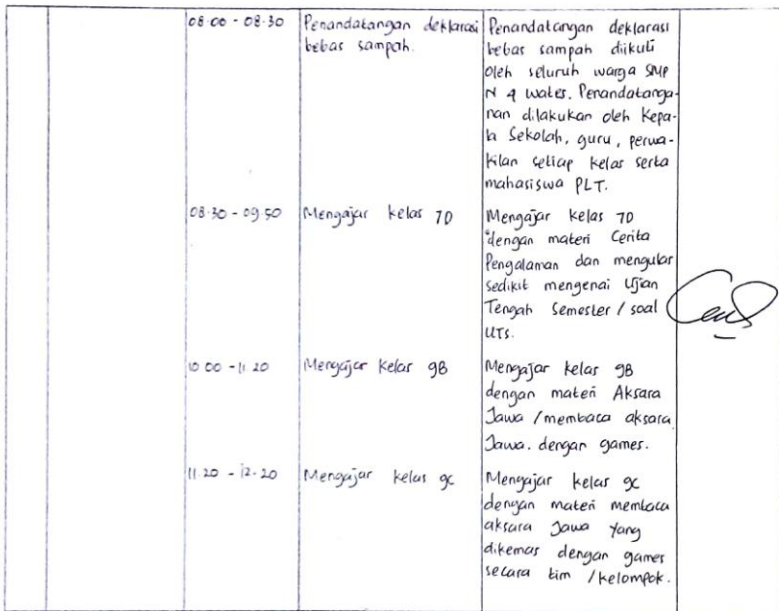 08.00 - 08.30
Penandatangan deklarasi
bebas sampah.
Penandatangan deklarasi
bebas sampah diikuti
oleh seluruh warga SMP
N 4 Wates. Penandatanga-
nan dilakukan oleh Kepa-
la Sekolah, guru, perwa-
kilan setiap kelas serta
mahasiswa PLT.
08.30 - 09.50
Mengajar kelas 7D
Mengajar kelas 7D
dengan materi Cerita
Pengalaman dan mengular
sedikit mengenai Ujian
Tengah Semester / soal
UTS.
10.00 - 11.20
Mengajar kelas 9B
Mengajar kelas 9B
dengan materi Aksara
Jawa / membaca aksara
Jawa. dengan games.
11.20 - 12.20
Mengajar kelas 9C
Mengajar kelas 9C
dengan materi membaca
aksara Jawa yang
dikemas dengan games
secara tim / kelompok.